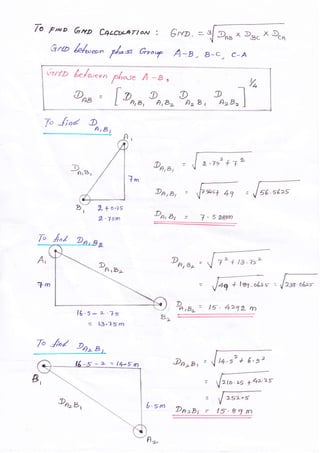 To FIND GMD CALCULATION : GMD. = 3√ DAB x DBC x DCA
GMD between phase Group A-B, B-C, C-A
GMD between phase A-B,
DAB = [ DA1B1 DA1B2 DA2B1 DA2B2 ] 1/4
To find DA1B1
A1
DA1B1
7m
B1
2 + 0.75
2.75m
DA1B1 = √ 2.75² + 7²
DA1B1 = √ 7.5625 + 49 = √ 56.5625
DA1B1 = 7.5208m
To find DA1B2
A1
DA1B2
7m
16.5 - 2.75
= 13.75m
B2
DA1B2 = √ 7² + 13.75²
= √ 49 + 189.0625 = √ 238.0625
DA1B2 = 15.4292 m
To find DA2B1
16.5 - 2 = 14.5m
B1
DA2B1
6.5m
A2
DA2B1 = √ 14.5² + 6.5²
= √ 210.25 + 42.25
= √ 252.5
DA2B1 = 15.89m